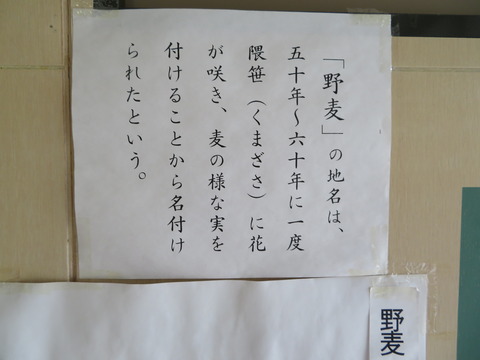 「野麦」の地名は、
五十年～六十年に一度
隈笹（くまざさ）に花
が咲き、麦の様な実を
付けることから名付け
られたという。
野麦